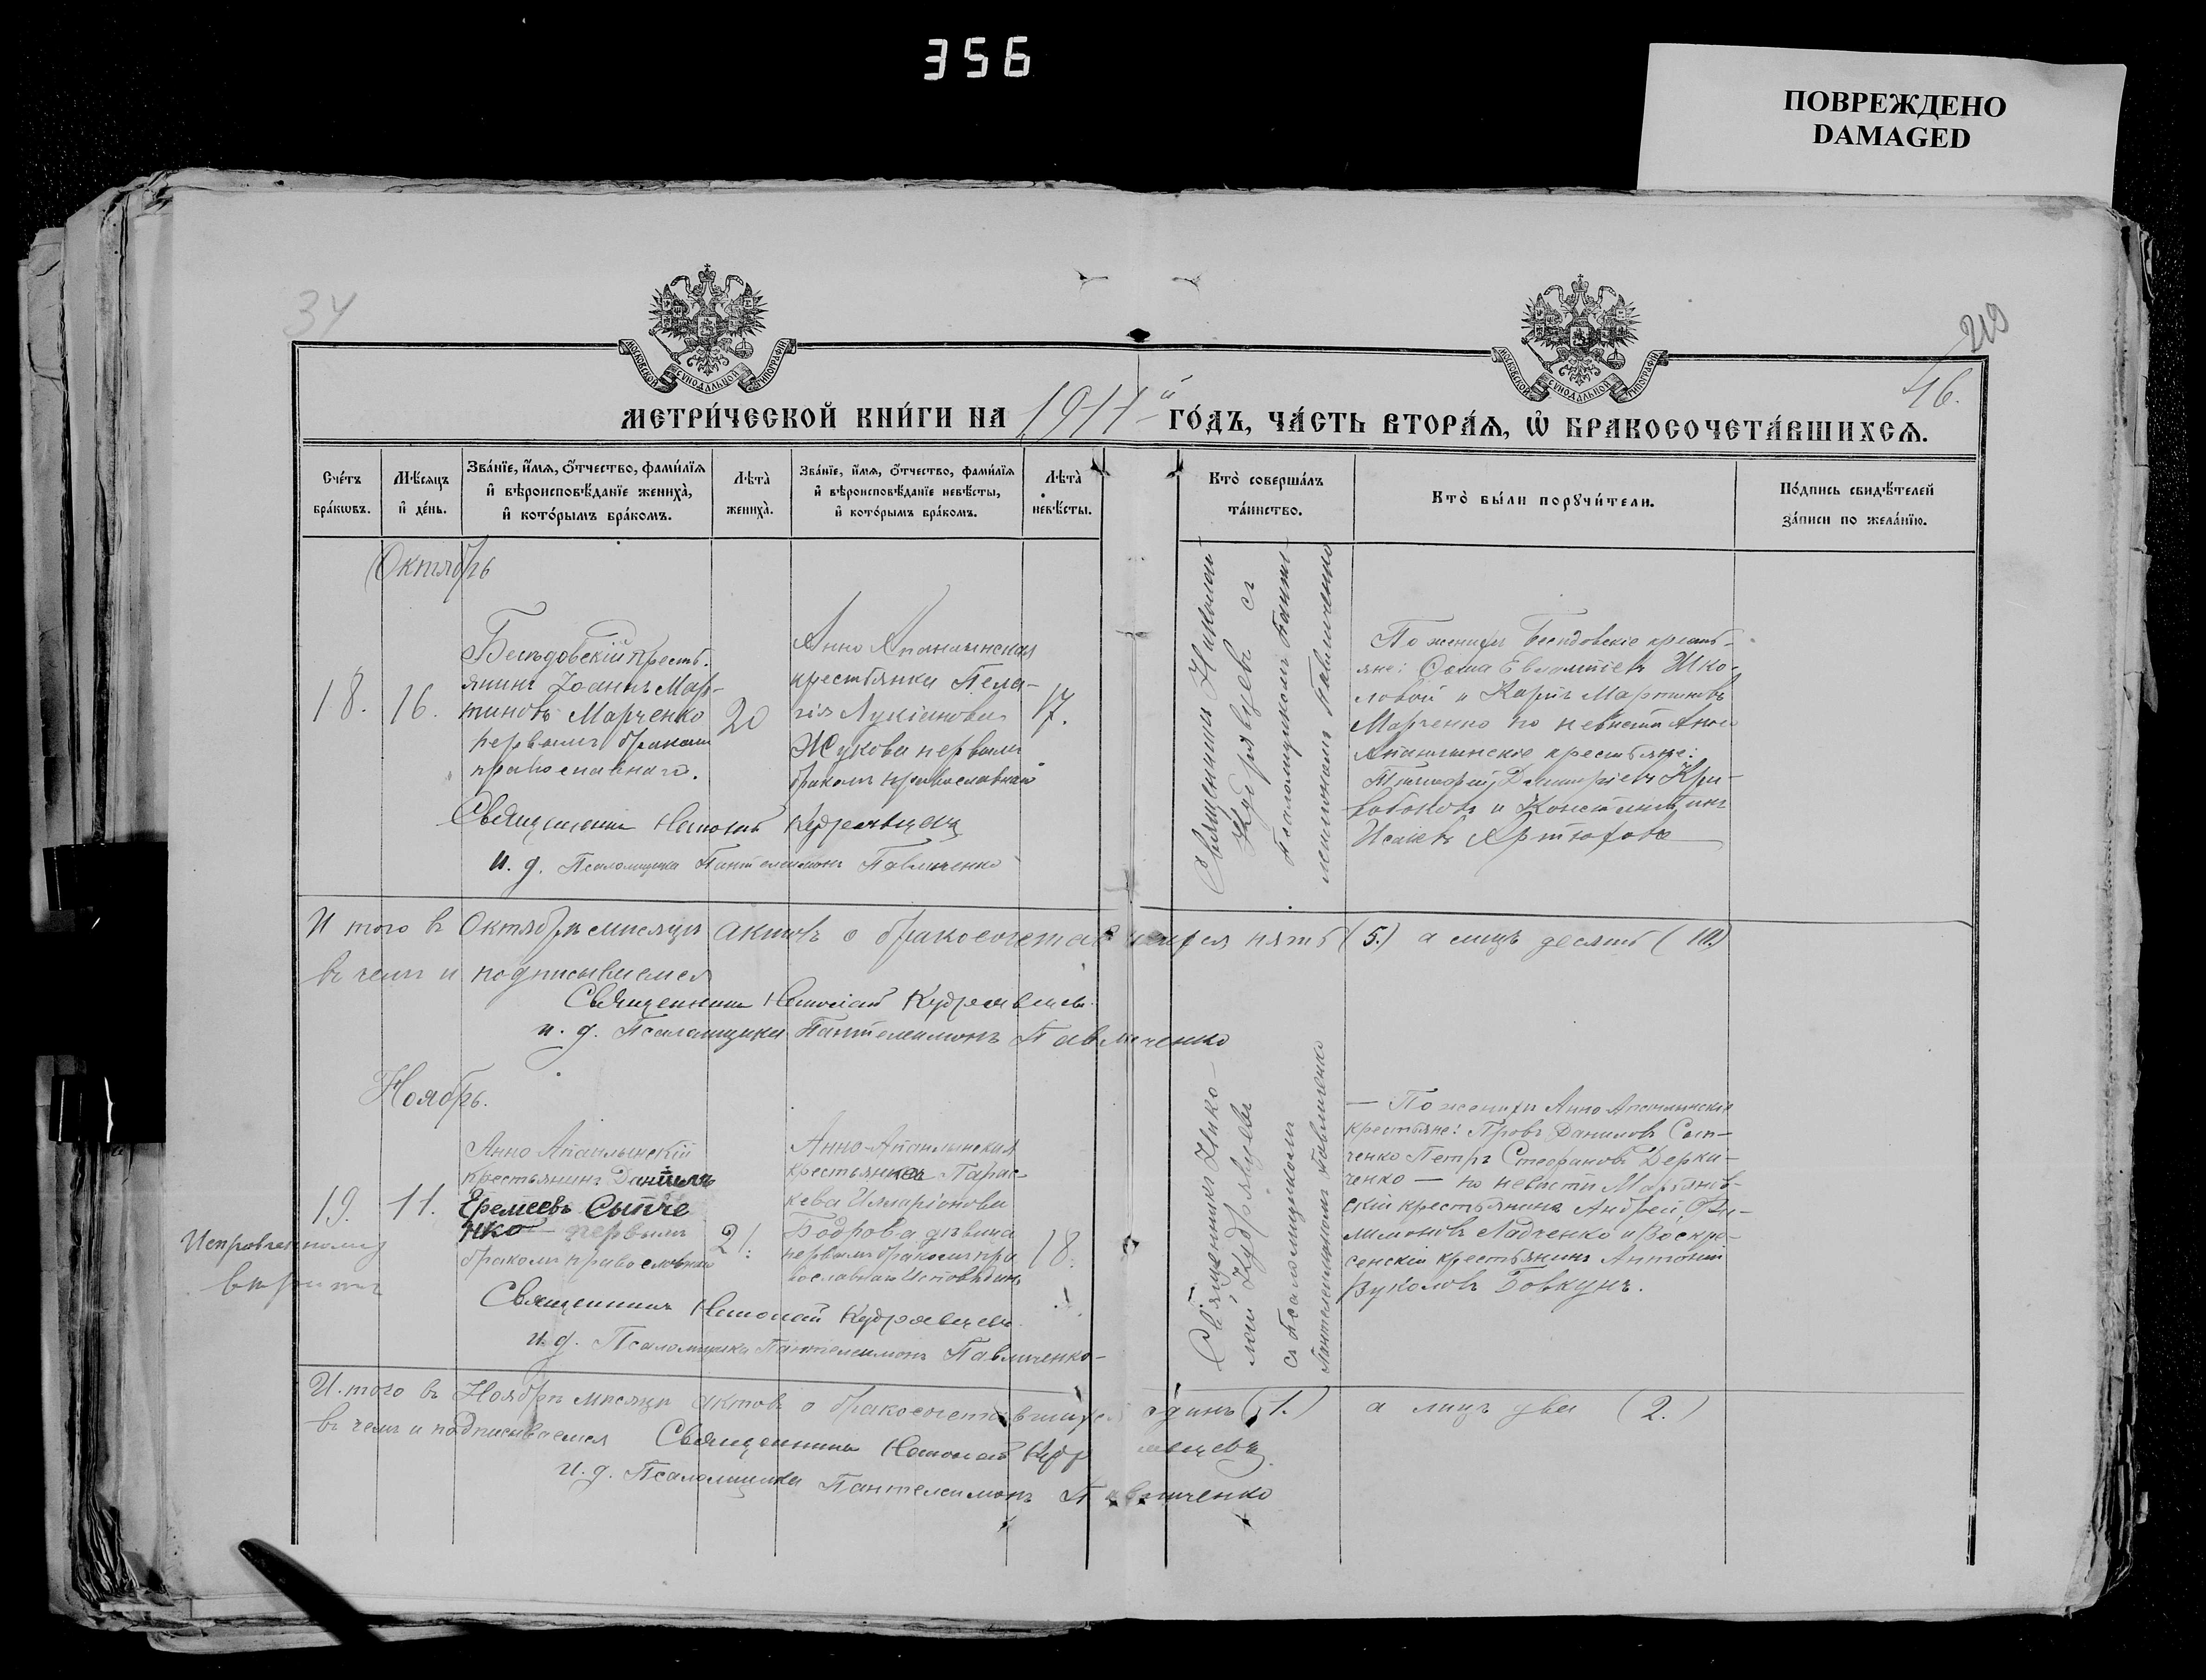 356
ПОВРЕЖДЕНО
DAMAGED
34
219
16.
МОСКОВСКОЙ СУНОДАЛЬНОЙ ТИПОГРАФІИ
МОСКОВСКОЙ СУНОДАЛЬНОЙ ТИПОГРАФІИ
МЕТРИ́ЧЕСКОЙ КНИ́ГИ НА 1911й ГО́ДЪ, ЧА́СТЬ ВТОРА́Я, Ѡ҆ БРАКОСОЧЕТА́ВШИХСЯ.
Сче́тъ
бра́кѡвъ.
Мѣ́сяцъ
и҆ де́нь.
Зва́нїе, и҆́мя, ѻ҆́тчество, фами́лїя
и҆ вѣроисповѣ́данїе жениха̀,
и҆ кото́рымъ бра́комъ.
Лѣта̀
жениха̀.
Зва́нїе, и҆́мя, ѻ҆́тчество, фами́лїя
и҆ вѣроисповѣ́данїе невѣ́сты,
и҆ кото́рымъ бра́комъ.
Лѣта̀
невѣ́сты.
Кто̀ соверша́лъ
та́инство.
Кто̀ бы́ли порꙋчи́тели.
По́дпись свидѣ́телей
за́писи по жела́нїю.
Октябрь
18.
16.
Беѣдовскій крестъ.
янинъ Іоаннъ Мар-
тиновъ Марченко
первымъ бракомъ
православнаго.
20
Анно Апанлинская
крестьянка Пела-
гія Лукіанова
Жукова первымъ
бракомъ православной
17.
Священникъ Николай
Кудрявцевъ съ
Псаломщикомъ Панте-
леимономъ Павличенко
По женихѣ Бееѣдовскіе кресть-
яне: Ѳома Евлампіевъ Шко-
ловой и Карпъ Мартиновъ
Марченко по невѣстѣ Анно
Апанлинскіе крестьяне:
Тимофей Димитріевъ Кри-
вобоковъ и Константинъ
Исаіевъ Артюховъ
Священникъ Николай Кудрявцевъ
и. д. Псаломщика Пантелеимонъ Павличенко
Итого въ Октябрѣ мѣсяцѣ актовъ о бракосочетавшихся пять (5.) а лицъ десять (10.)
въ чемъ и подписываемся
Священникъ Николай Кудрявцевъ.
и. д. Псаломщика Пантелеимонъ Павличенко
Ноябрь.
19.
11.
Анно Апанлинскій
крестьянинъ Даніилъ
Еремеевъ Сытче
нко первымъ
бракомъ православнаго
21.
Анно-Апанлинская
крестьянка Парас-
кева Иларіонова
Бодрова дѣвица
первымъ бракомъ пра
вославнаго Исповѣданія
18.
Священникъ Нико-
лай Кудрявцевъ
съ Псаломщикомъ
Пантелеимономъ Павличенко
— По женихѣ Анно Апанлинскіе
крестьяне: Провъ Даниловъ Сыт-
ченко Петръ Стефановъ Дерка-
ченко — по невѣсти Марьянов-
скій крестьянинъ Андрей Фи-
лимоновъ Ладченко и Воскре-
сенскій крестьянинъ Антоній
Вуколовъ Бовкунъ.
Исправленному
вѣрить
Священникъ Николай Кудрявцевъ.
и. д. Псаломщика Пантелеимонъ Павличенко-
Итого въ Ноябрѣ мѣсяцѣ актовъ о бракосочетавшихся одинъ (1.) а лицъ два (2.)
въ чемъ и подписываемся Священникъ Николай Кудрявцевъ.
и. д. Псаломщика Пантелеимонъ Павличенко